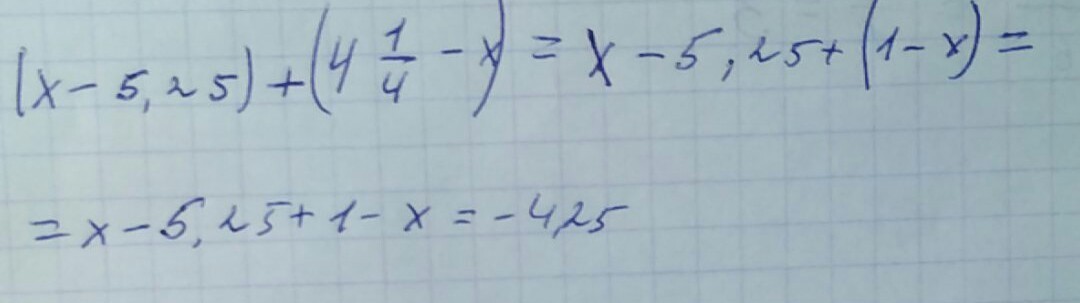 (x - 5,25) + (4 1/4 - x) = x - 5,25 + (1 - x) =
= x - 5,25 + 1 - x = -4,25